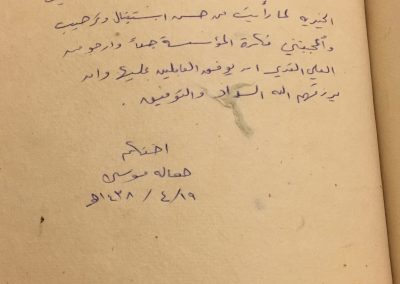 الخيرية لما رأيت من حسن استقبال وترحيب
وأعجبتني فكرة المؤسسة جداً وأرجو من
العلي القدير ان يوفق العاملين عليها وان
يرزقهم الله السداد والتوفيق .
اختكم
موسى
١٩ / ٤ / ١٤٣٨هـ